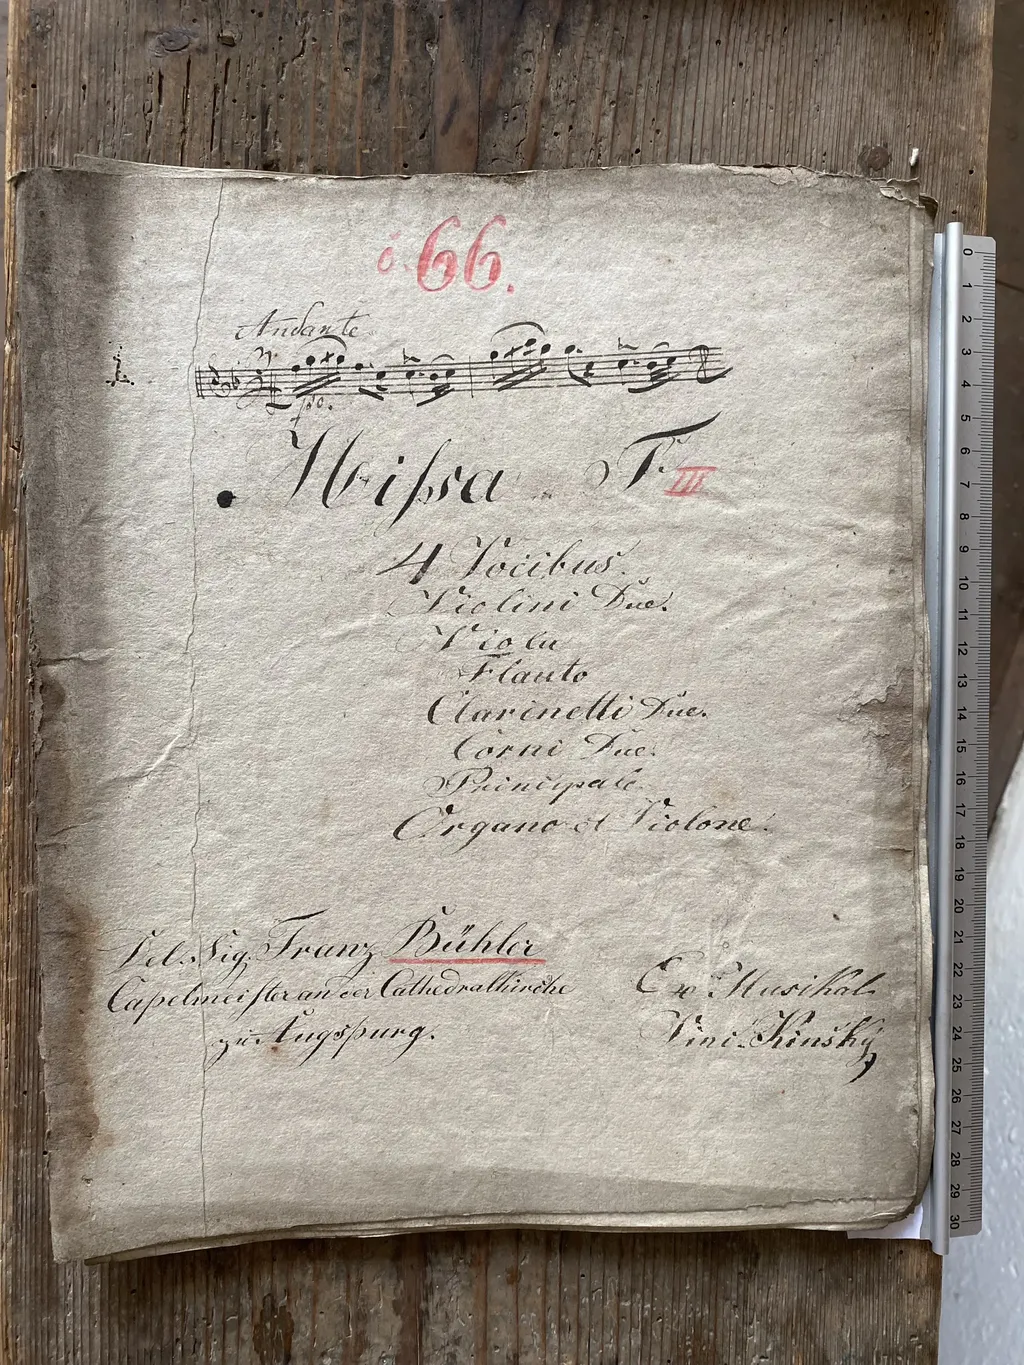 č. 66.
Andante
1.
fpo.
Missa in F. III
4 Vocibus.
Violini Due.
Viola
Flauto
Clarinetti Due.
Corni Due.
Principale
Organo et Violone.
Del. Sig. Franz Bühler
Capelmeister an der Cathedralkirche
zu Augspurg.
Ex Musikal.
Vini. Kinský
0
1
2
3
4
5
6
7
8
9
10
11
12
13
14
15
16
17
18
19
20
21
22
23
24
25
26
27
28
29
30